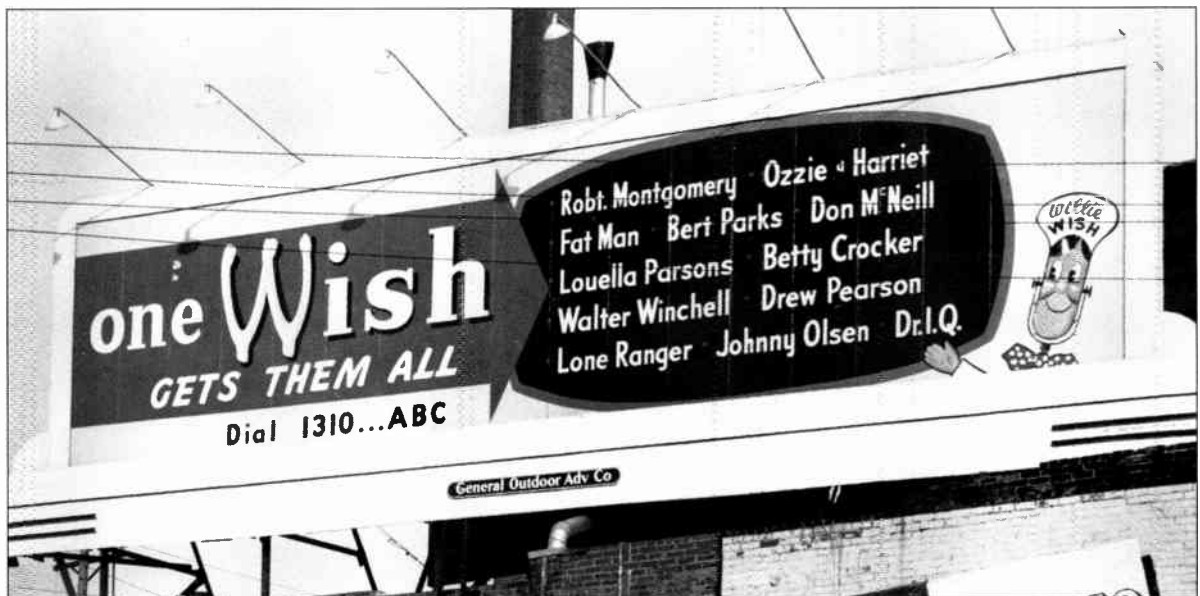 one Wish
GETS THEM ALL
Dial 1310...ABC
Robt. Montgomery Ozzie & Harriet
Fat Man Bert Parks Don McNeill
Louella Parsons Betty Crocker
Walter Winchell Drew Pearson
Lone Ranger Johnny Olsen Dr.I.Q.
Willie
WISH
General Outdoor Adv Co